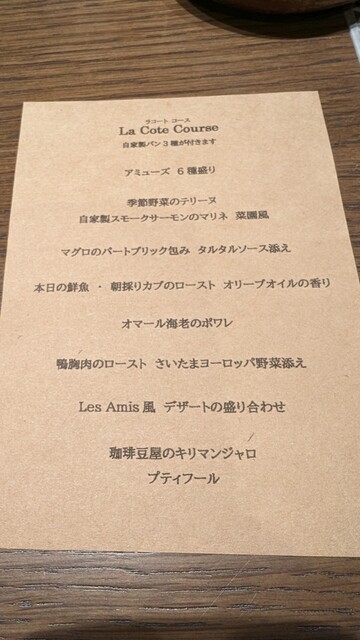 ラコート コース
La Cote Course
自家製パン3種が付きます
アミューズ 6種盛り
季節野菜のテリーヌ
自家製スモークサーモンのマリネ 菜園風
マグロのパートブリック包み タルタルソース添え
本日の鮮魚・朝採りカブのロースト オリーブオイルの香り
オマール海老のポワレ
鴨胸肉のロースト さいたまヨーロッパ野菜添え
Les Amis風 デザートの盛り合わせ
珈琲豆屋のキリマンジャロ
プティフール